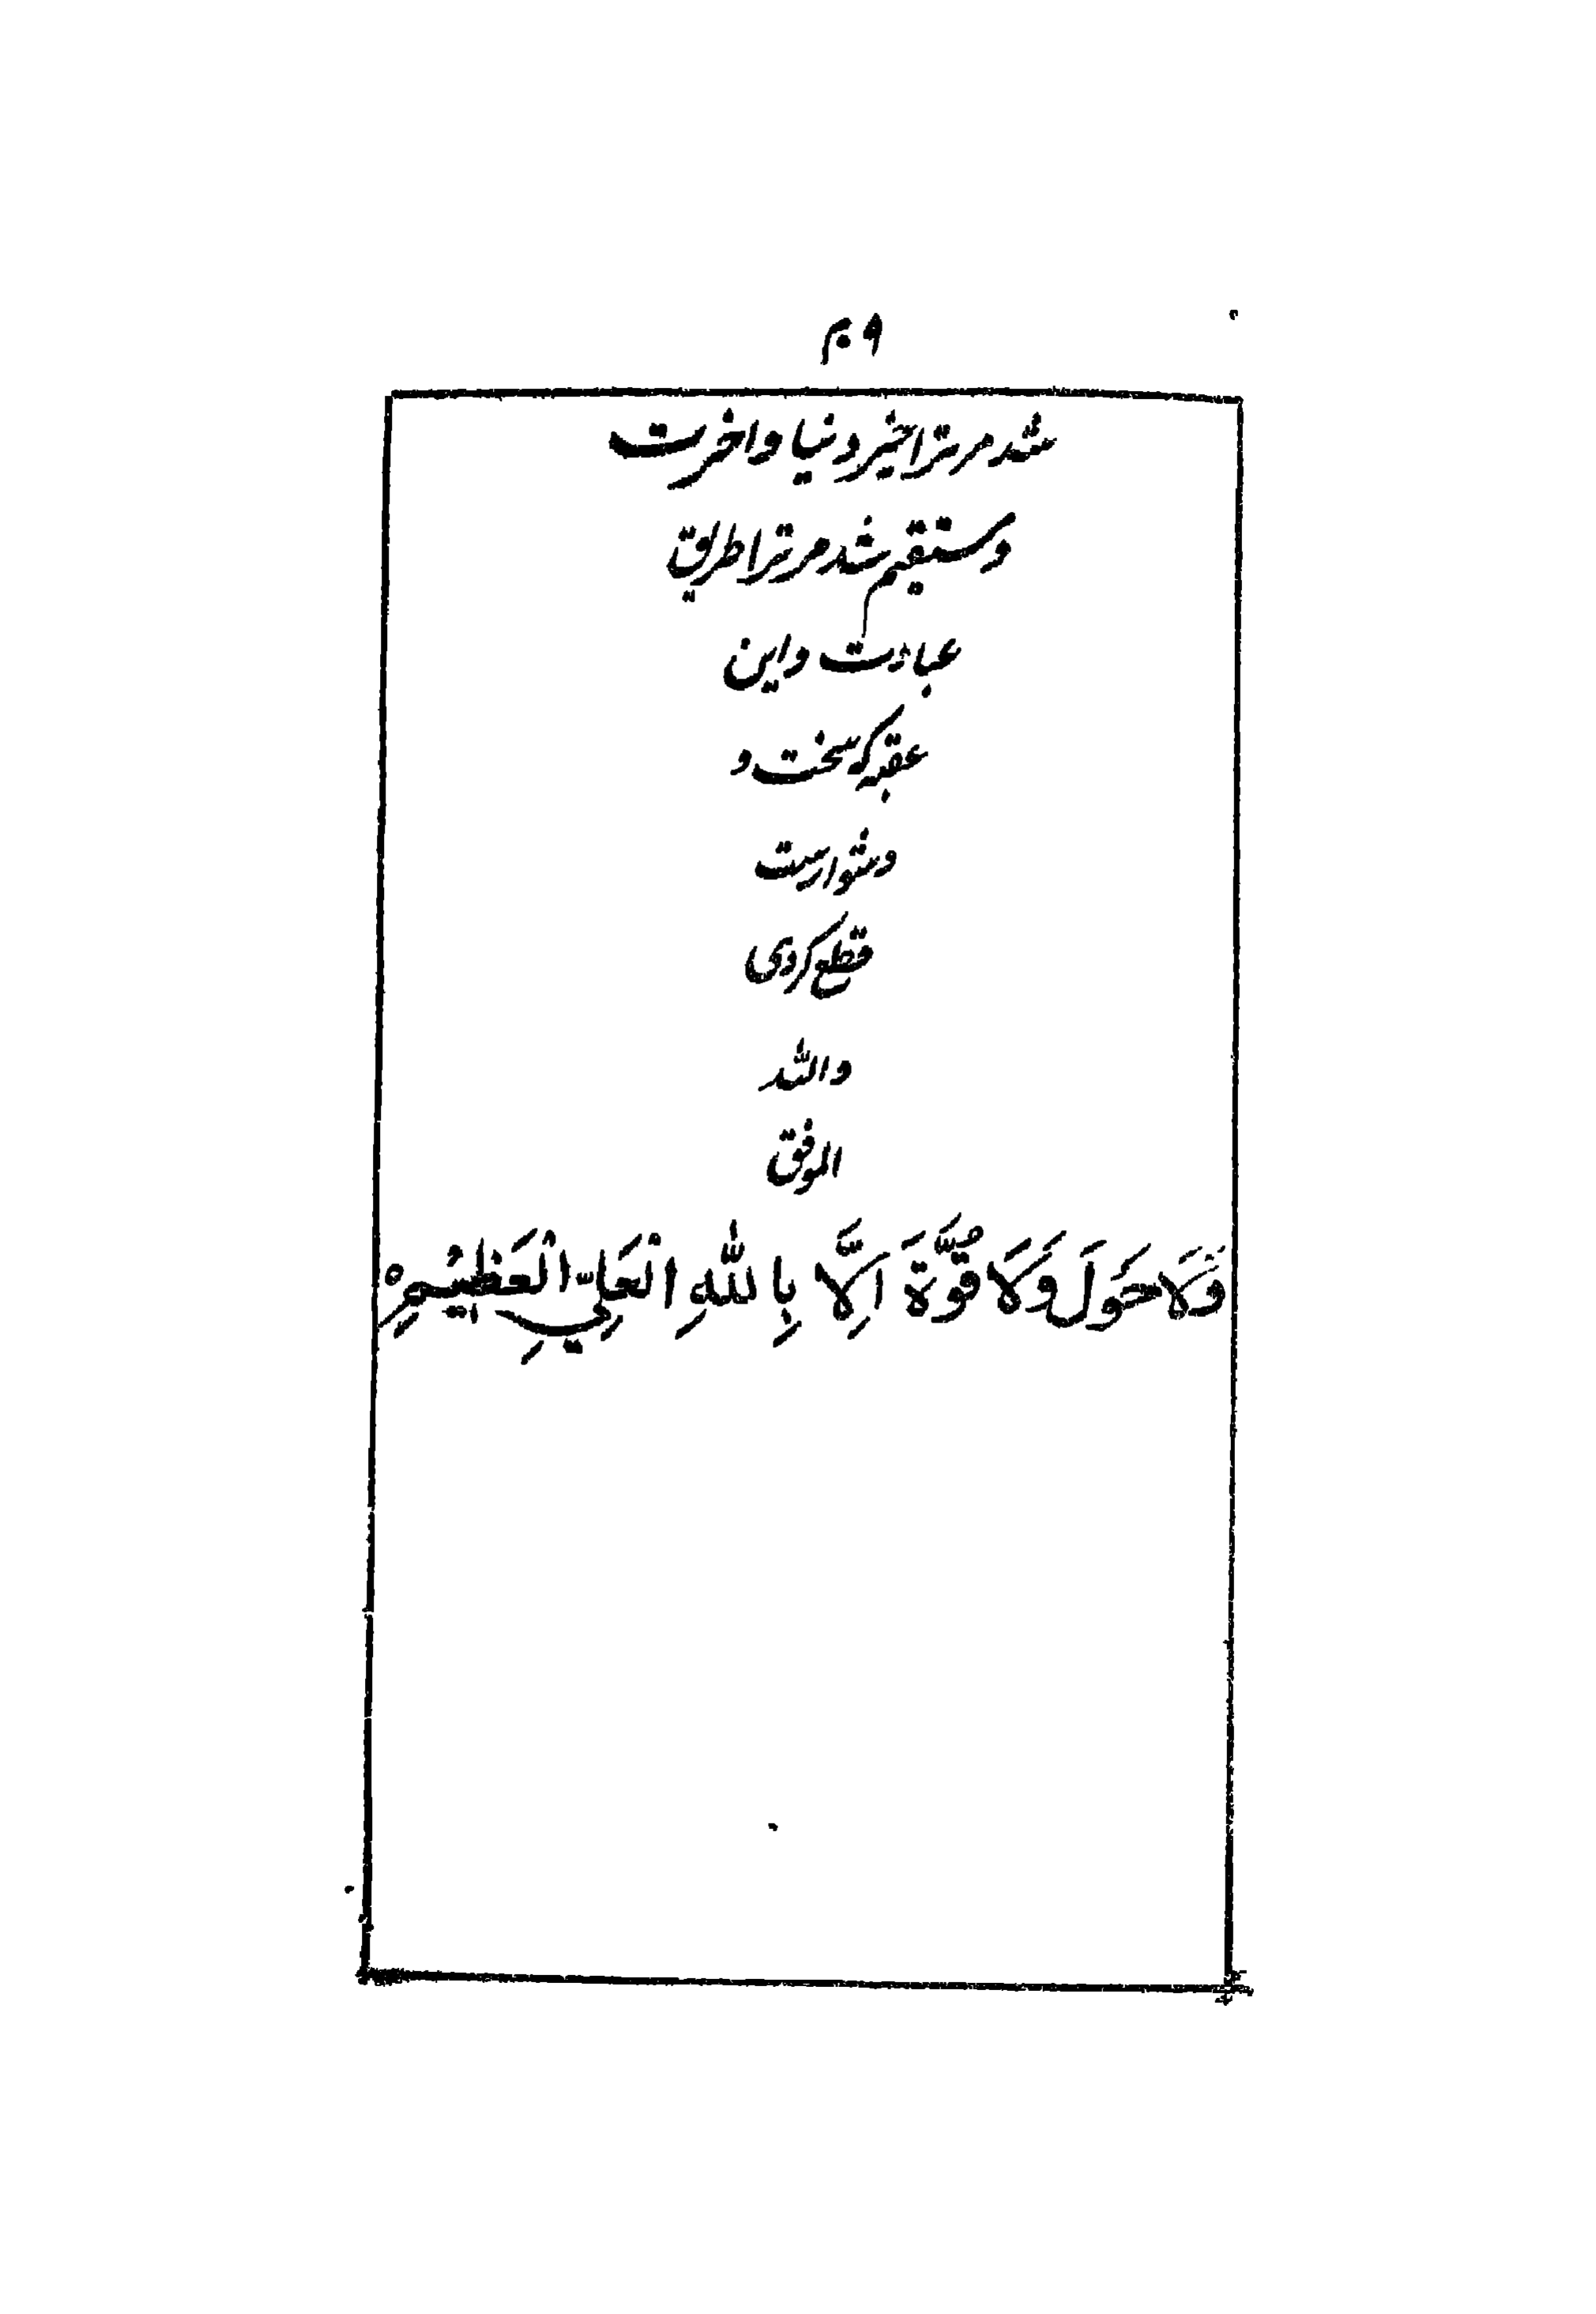 ۲۰۹
شد مر ترا خیر دنیا و اخرت
و مستقیم شد مر ترا طریق
عبادت و این
عقبه که سخت و
دشوارست
قطع کردی
والله
الموفق
وَلَا حَوْلَ وَلَا قُوَّةَ اِلَّا بِاللّٰهِ الْعَلِيِّ الْعَظِيْمِ ه